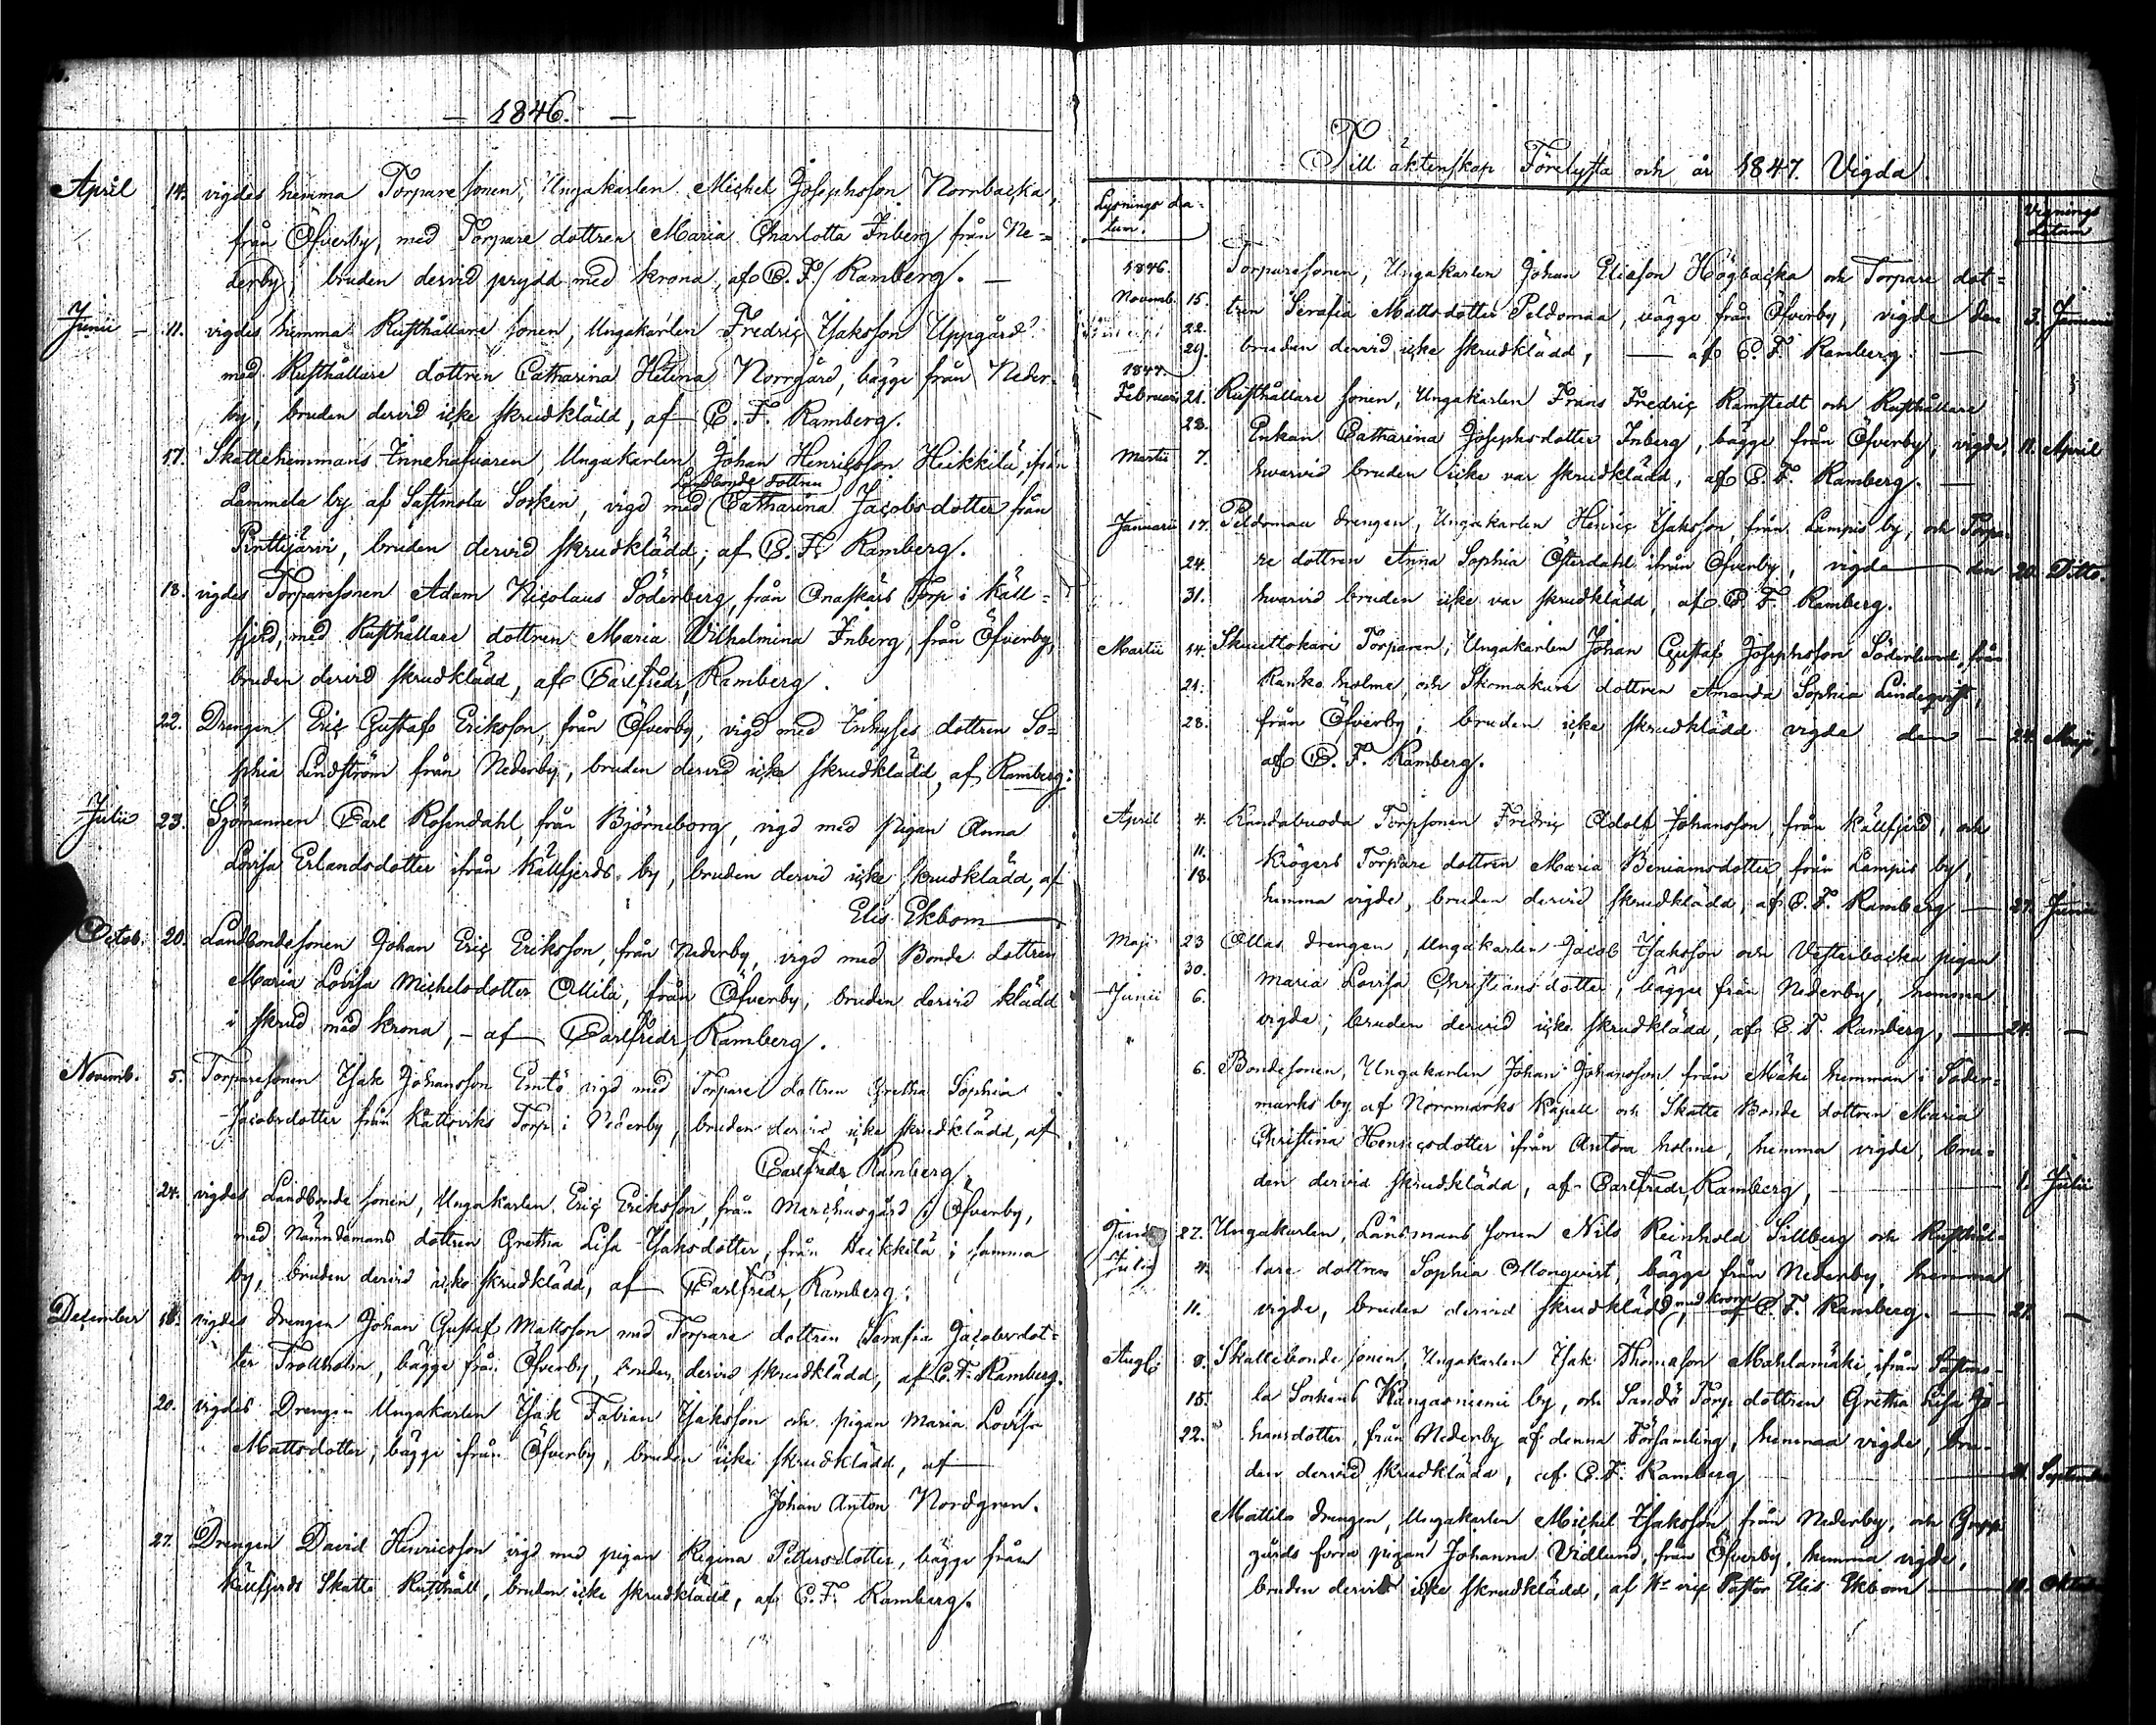 — 1846. —
April 14. vigdes hemma Torparesonen, Ungakarlen Michel Josephsson Norrbacka,
från Öfverby, med Torpare dottren Maria Charlotta Inberg från Ne-
derby, bruden dervid prydd med krona, af C. F. Ramberg. —
Junii — 11. vigdes hemma Rusthållare sonen, Ungakarlen Fredric Isaksson Uppgård
med Rusthållare dottren Catharina Helena Norrgård, bägge från Neder-
by, bruden dervid icke skrudklädd, af C. F. Ramberg.
17. Skattehemmans Innehafvaren, Ungakarlen Johan Henricsson Heikkilä, ifrån
Landbonde dottren
Lammela by af Sastmola Socken, vigd med Catharina Jacobsdotter från
Pinttijärvi, bruden dervid skrudklädd, af C. F. Ramberg.
18. vigdes Torparesonen Adam Nicolaus Söderberg, från Onaskärs Torp i Käll-
fjerd, med Rusthållare dottren Maria Wilhelmina Inberg, från Öfverby,
bruden dervid skrudklädd, af Carlfredr. Ramberg.
22. Drengen Eric Gustaf Eriksson, från Öfverby, vigd med Inhyses dottren So-
phia Lindström från Nederby, bruden dervid icke skrudklädd, af Ramberg.
Julii 23. Sjömannen Carl Rosendahl, från Björneborg, vigd med pigan Anna
Lovisa Erlandsdotter ifrån Källfjerds by, bruden dervid icke skrudklädd, af
Elis Ekbom
Octob. 20. Landbondesonen Johan Eric Eriksson, från Nederby, vigd med Bonde dottren
Maria Lovisa Michelsdotter Ollila, från Öfverby, bruden dervid klädd
i skrud med krona, — af Carlfredr. Ramberg.
Novemb. 5. Torparesonen Isak Johansson Emtö vigd med Torpare dottren Gretha Sophia
Jacobsdotter från Kattviks Torp i Nederby, bruden dervid icke skrudklädd, af
Carlfredr. Ramberg.
24. vigdes Landbonde sonen, Ungakarlen Eric Eriksson, från Marchusgård i Öfverby,
med Nämndemans dottren Gretha Lisa Isaksdotter, från Heikkilä i samma
by, bruden dervid icke skrudklädd, af Carlfredr. Ramberg.
December 16. vigdes drengen Johan Gustaf Matsson med Torpare dottren Serafia Jacobsdot-
ter Trollholm, bägge från Öfverby, bruden dervid skrudklädd, af C. F. Ramberg.
20. vigdes Drengen Ungakarlen Isak Fabian Isaksson och pigan Maria Lovisa
Mattsdotter, bägge ifrån Öfverby, bruden icke skrudklädd, af
Johan Anton Nordgren.
27. Drengen David Henricsson vigd med pigan Regina Pettersdotter, bägge från
Källfjerds Skatte Rusthåll, bruden icke skrudklädd, af C. F. Ramberg.
Till äktenskap Förelysta och år 1847. Vigda.
Lysnings da-
tum.
Vignings
datum
1846. Torparesonen, Ungakarlen Johan Eliasson Högbacka och Torpare dot-
Novemb. 15. tren Serafia Mattsdotter Peldomaa, bägge från Öfverby, vigde den 3. Januarii
22.
29. bruden dervid icke skrudklädd, — af C. F. Ramberg. —
1847.
Februarii 21. Rusthållare sonen, Ungakarlen Frans Fredric Ramstedt och Rusthållare
28. Enkan Catharina Josephsdotter Inberg, bägge från Öfverby, vigde 11. April
Martii 7. hvarvid bruden icke var skrudklädd, af C. F. Ramberg. —
Januarii 17. Peldomaa drengen, Ungakarlen Henric Isaksson, från Lampis by, och Torpa-
24. re dottren Anna Sophia Österdahl ifrån Öfverby, vigde den 20. Ditto.
31. hvarvid bruden icke var skrudklädd, af C. F. Ramberg.
Martii 14. Torparen, Ungakarlen Johan Gustaf Josephsson Söderlund, från
21. holme, och Skomakare dottren Amanda Sophia Lindeqvist,
28. från Öfverby, bruden icke skrudklädd vigde den — 24. Maji
af C. F. Ramberg.
April 4. Torpsonen Fredric Adolf Johansson, från Källfjerd, och
11.
18. Krögers Torpare dottren Maria Beniamsdotter, från Lampis by,
hemma vigde, bruden dervid skrudklädd, af C. F. Ramberg — 27. Junii
Maji 23 Ollas drengen, Ungakarlen Jacob Isaksson och Vesterbacka pigan
30.
Junii 6. Maria Lovisa Christiansdotter, bägge från Nederby, hemma
vigde, bruden dervid icke skrudklädd, af C. F. Ramberg, — 24. —
" 6. Bondesonen, Ungakarlen Johan Johansson från Mäki hemman i Söder-
marks by af Norrmarks Kapell och Skatte Bonde dottren Maria
Christina Henricsdotter ifrån Antora holme, hemma vigde, bru-
den dervid skrudklädd, af Carlfredr. Ramberg, — 1. Julii
Junii 27. Ungakarlen, Länsmans sonen Nils Reinhold Sillberg och Rusthål-
Julii 4. lare dottren Sophia Ollonqvist, bägge från Nederby, hemma
med krona
11. vigde, bruden dervid skrudklädd, af C. F. Ramberg. — 27. —
Aug. 8. Skattebonde sonen, Ungakarlen Isak Thomasson Mahlamäki, ifrån Sastmo-
15. la Sockens Kangasniemi by, och Sandö Torp dottren Gretha Lisa Jo-
22. hansdotter, från Nederby af denna Församling, hemma vigde, bru-
den dervid skrudklädd, af C. F. Ramberg 21. September
Mattila drengen, Ungakarlen Michel Isaksson från Nederby, och
gårds förra pigan Johanna Vidlund, från Öfverby, hemma vigde,
bruden dervid icke skrudklädd, af Hr vice Pastor Elis Ekbom — 10. Oktober